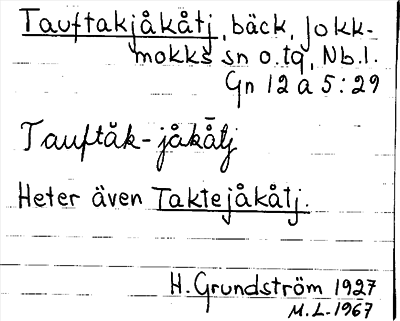 Tauftakjåkåtj, bäck, Jokk-
mokks sn o. tg, Nb.l.
Gn 12 a 5:29
Tauftăk-jåkā̊tj
Heter även Taktejåkåtj.
H. Grundström 1927
M.L. 1967